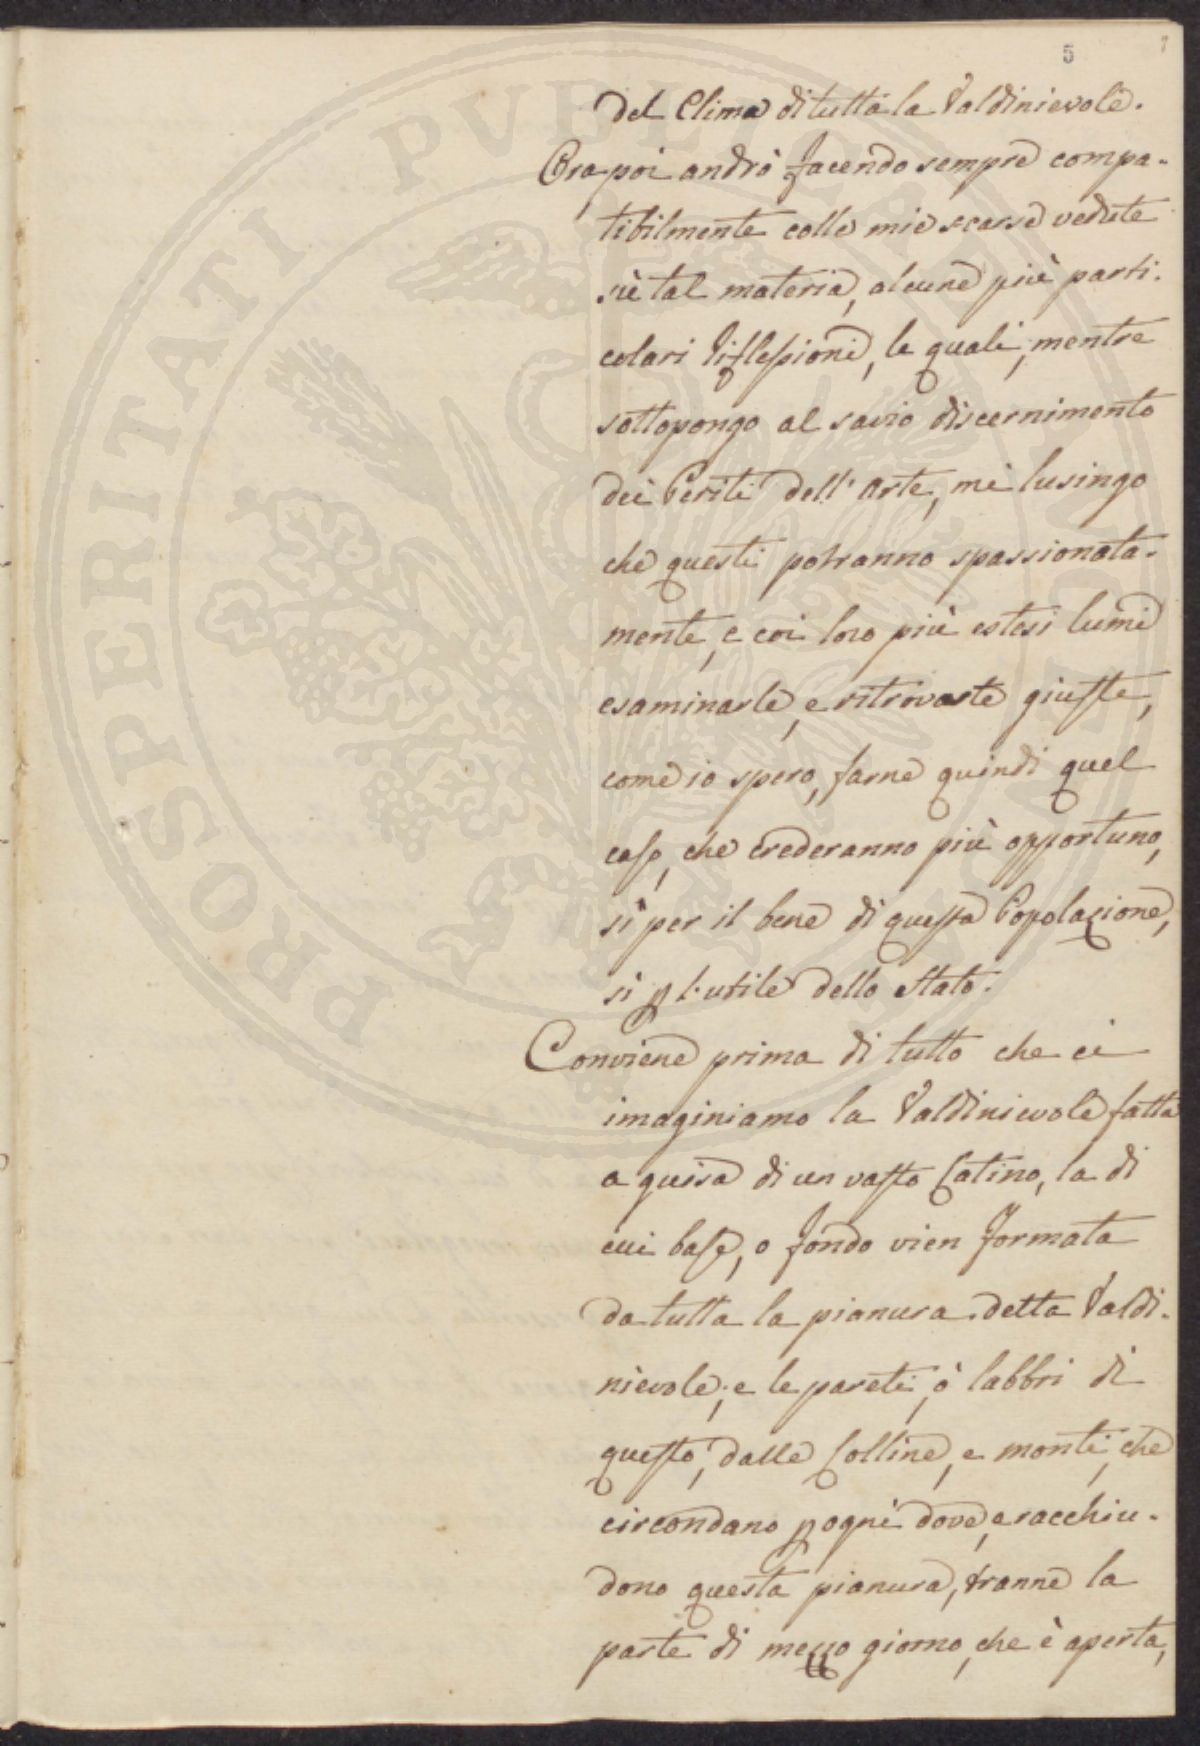 5
7
del Clima di tutta la Valdinievole.
Ora poi andrò facendo sempre compa-
tibilmente colle mie scarse vedute
sù tal materia, alcune più parti-
colari riflessioni, le quali, mentre
sottopongo al savio discernimento
dei Periti dell'Arte, mi lusingo
che questi potranno spassionata-
mente, e coi loro più estesi lumi
esaminarle, e ritrovate giuste,
come io spero, farne quindi quel
caso, che crederanno più opportuno,
sì per il bene di questa Popolazione,
sì p l'utile dello Stato.
Conviene prima di tutto che ci
imaginiamo la Valdinievole fatta
a guisa di un vasto Catino, la di
cui base, o fondo vien formata
da tutta la pianura detta Valdi-
nievole; e le pareti, ò labbri di
questo, dalle Colline, e monti, che
circondano p ogni dove, e racchiu-
dono questa pianura, tranne la
parte di mezzo giorno, che è aperta,
PROSPERITATI PUBLICAE AUGENDAE